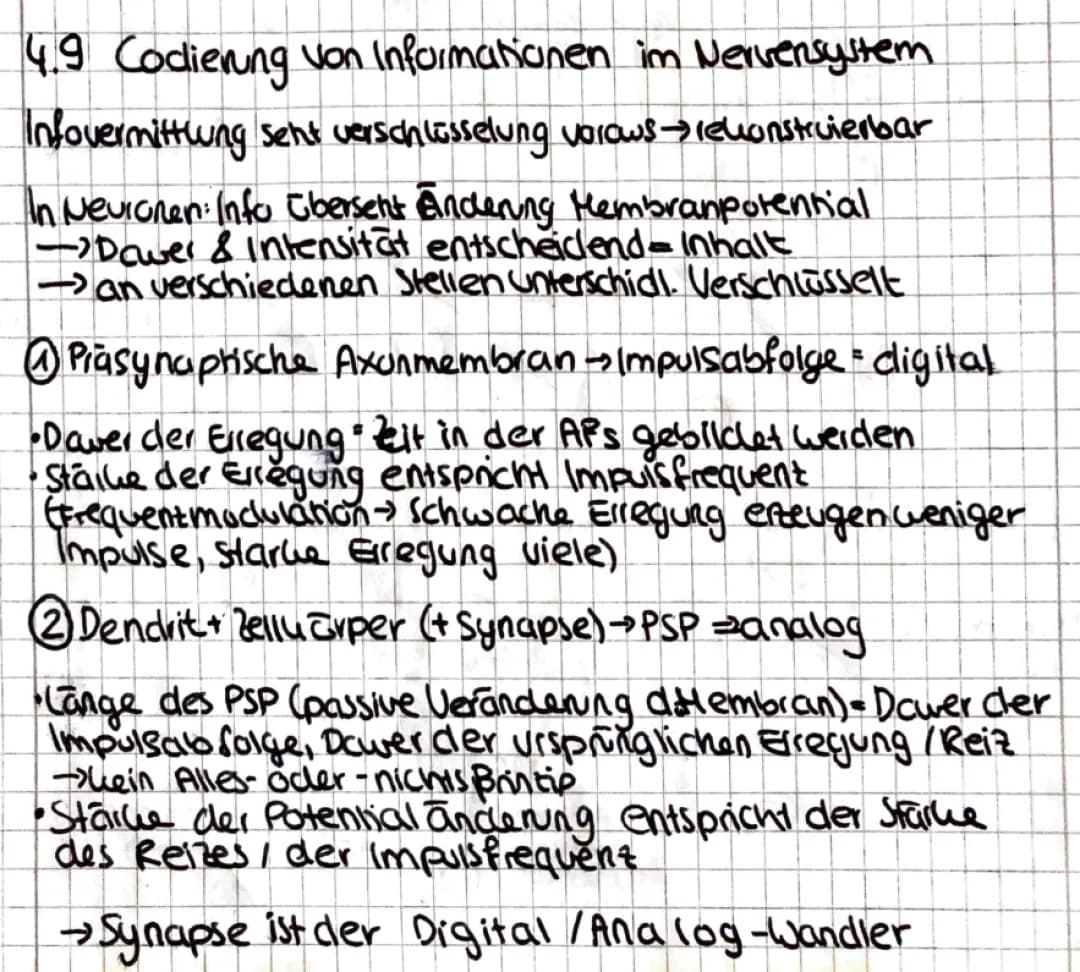 4.9 Codierung von Informationen im Nervensystem
Infovermittlung setzt verschlüsselung voraus → rekonstruierbar
In Neuronen: Info übersetzt Änderung Membranpotential
→ Dauer & Intensität entscheidend = Inhalt
→ an verschiedenen Stellen unterschidl. Verschlüsselt
① Präsynaptische Axonmembran → Impulsabfolge = digital
• Dauer der Erregung = Zeit in der APs gebildet werden
• Stärke der Erregung entspricht Impulsfrequenz
(Frequenzmodulation → Schwache Erregung erzeugen weniger
Impulse, starke Erregung viele)
② Dendrit + Zellkörper (+ Synapse) → PSP ⇒ analog
• Länge des PSP (passive Veränderung d. Membran) = Dauer der
Impulsabfolge, Dauer der ursprünglichen Erregung / Reiz
→ kein Alles-oder-nichts Prinzip
• Stärke der Potentialänderung entspricht der Stärke
des Reizes / der Impulsfrequenz
→ Synapse ist der Digital / Analog-Wandler